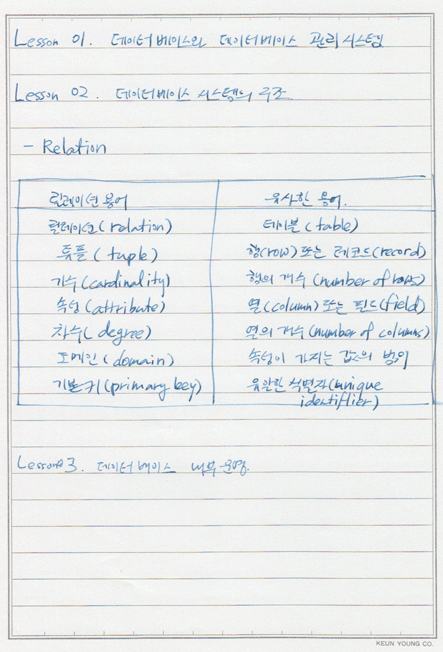 Lesson 01. 데이터베이스와 데이터베이스 관리시스템
Lesson 02. 데이터베이스 시스템의 구조
- Relation
릴레이션 용어 유사한 용어.
릴레이션(relation) 테이블(table)
튜플(tuple) 행(row) 또는 레코드(record)
기수(cardinality) 행의 개수(number of rows)
속성(attribute) 열(column) 또는 필드(field)
차수(degree) 열의 개수(number of columns)
도메인(domain) 속성이 가지는 값의 범위
기본키(primary key) 유일한 식별자(unique
identifier)
Lesson 3. 데이터베이스 내부운영.
KEUN YOUNG CO.